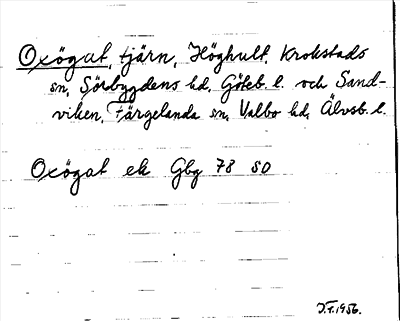 Oxögat, tjärn, Höghult, Krokstads
sn, Sörbygdens hd, Göteb. l. och Sand-
viken, Färgelanda sn, Valbo hd, Älvsb. l.
Oxögat ek Gbg 78 SO
J.F. 1956.